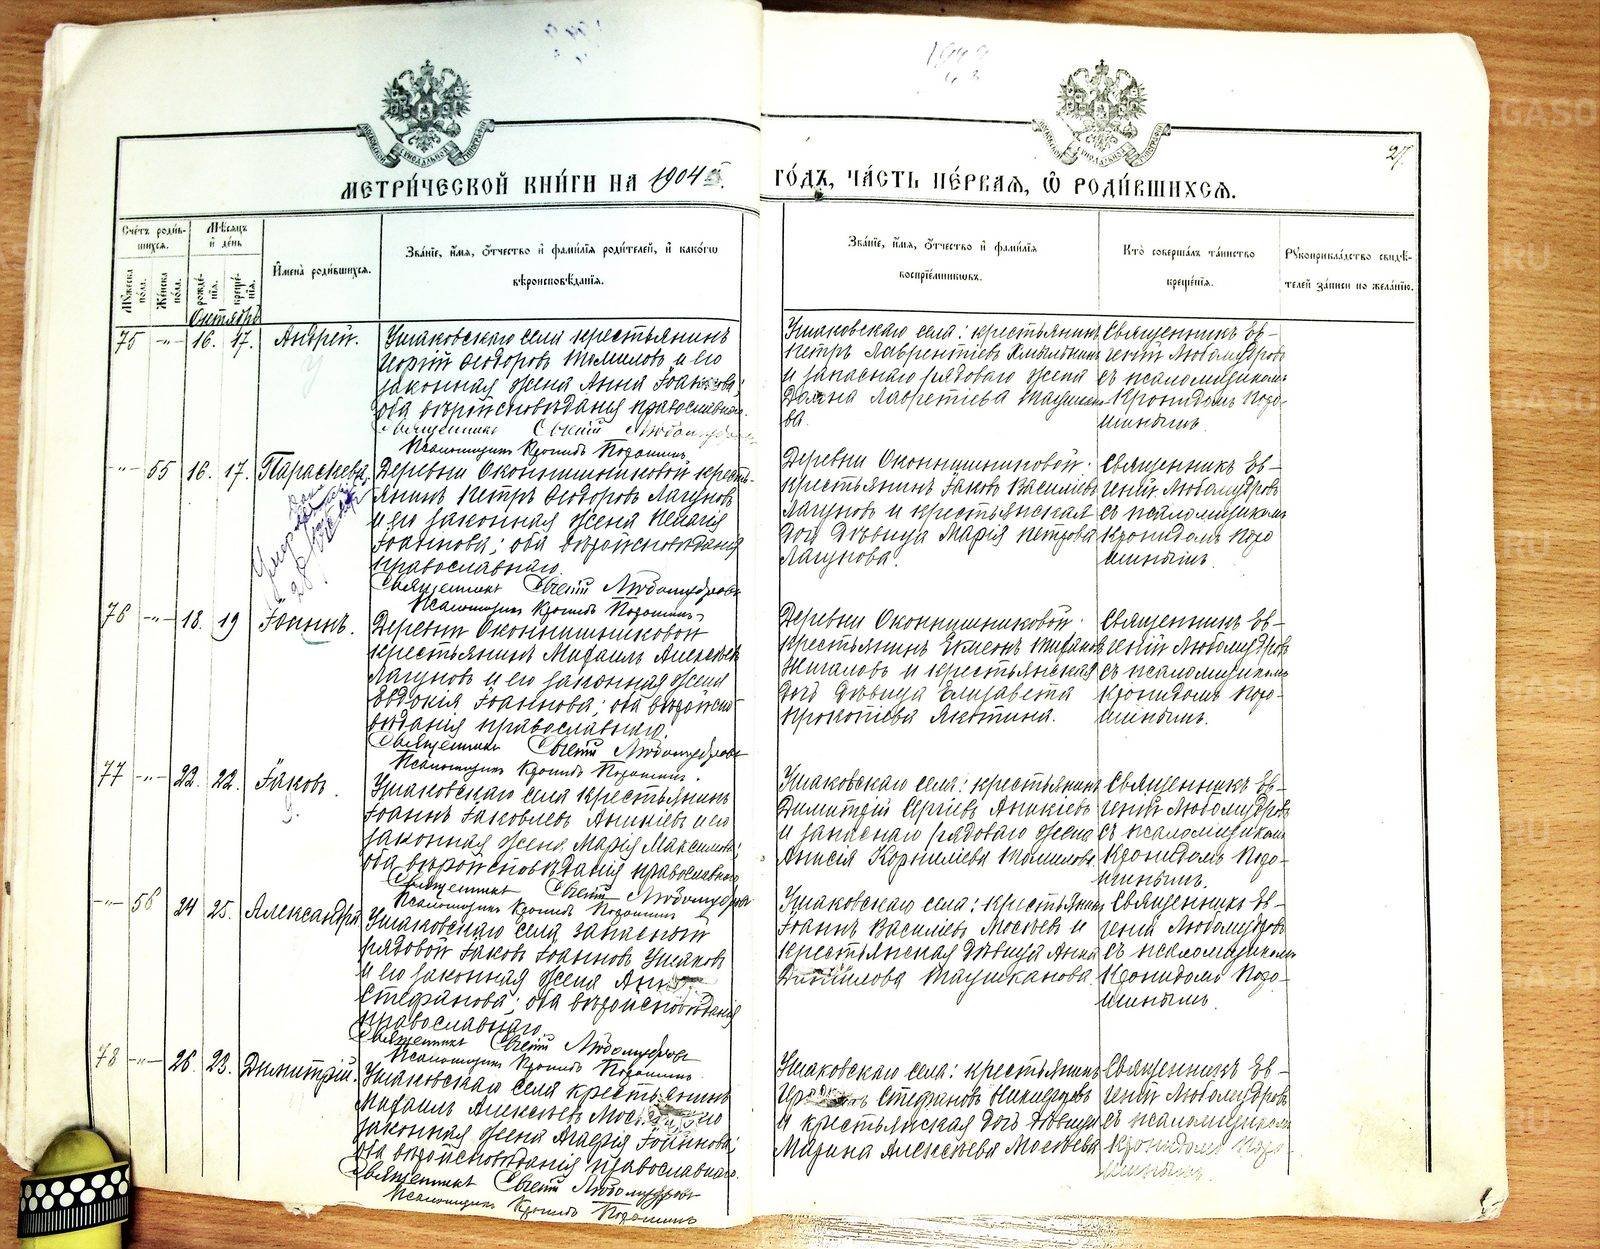 МЕТРИ́ЧЕСКОЙ КНИ́ГИ НА 1904 й
ГО́ДЪ, ЧА́СТЬ ПЕ́РВАЯ, Ѽ РОДИ́ВШИХСЯ.
27.
Сче́тъ роди́в-
шихся.
Му́жеска по́ла.
Же́нска по́ла.
Мѣ́сяцъ
и҆ де́нь
рожде́-
нїя.
креще́-
нїя.
И҆мена̀ роди́вшихся.
Зва́нїе, и҆́мя, ѻ҆́тчество и҆ фами́лїя роди́телей, и҆ како́гѡ
вѣроисповѣ́данїя.
Зва́нїе, и҆́мя, ѻ҆́тчество и҆ фами́лїя
воспрїе́мниковъ.
Кто̀ соверша́лъ та́инство
креще́нїя.
Рꙋкоприкла́дство свидѣ́-
телей за́писи по жела́нїю.
Октябрь
75 -"- 16. 17. Андрей.
Ушаковскаго села крестьянинъ
Георгій Ѳеодоровъ Томиловъ и его
законная жена Анна Іоаннова;
оба вѣроисповѣданія православнаго.
Священникъ Евгеній Любомудровъ
Псаломщикъ Кронидъ
Ушаковскаго села: крестьянинъ
Петръ Лаврентіевъ
и запаснаго рядоваго жена
Лаврентіева
ва.
Священникъ Ев-
геній Любомудровъ
съ псаломщикомъ
Кронидомъ
-"- 55 16. 17. Параскева.
Деревни Оконишниковой кресть-
янинъ Петръ Ѳеодоровъ Лагуновъ
и его законная жена Пелагія
Іоаннова; оба вѣроисповѣданія
православнаго.
Священникъ Евгеній Любомудровъ
Псаломщикъ Кронидъ
Деревни Оконишниковой:
крестьянинъ Іаковъ Василіевъ
Лагуновъ и крестьянская
дочь дѣвица Марія Петрова
Лагунова.
Священникъ Ев-
геній Любомудровъ
съ псаломщикомъ
Кронидомъ
76 -"- 18. 19 Іоаннъ.
Деревни Оконишниковой
крестьянинъ Михаилъ Алексѣевъ
Лагуновъ и его законная жена
Евдокія Іоаннова; оба вѣроиспо-
вѣданія православнаго.
Священникъ Евгеній Любомудровъ
Псаломщикъ Кронидъ
Деревни Оконишниковой:
крестьянинъ
Жигаловъ и крестьянская
дочь дѣвица Елизавета
Прокопіева Якотина.
Священникъ Ев-
геній Любомудровъ
съ псаломщикомъ
Кронидомъ
77 -"- 22. 22. Іаковъ.
Ушаковскаго села крестьянинъ
Іоаннъ Іаковлевъ Аникіевъ и его
законная жена Марія Максимова;
оба вѣроисповѣданія православнаго
Священникъ Евгеній Любомудровъ
Псаломщикъ Кронидъ
Ушаковскаго села: крестьянинъ
Димитрій Сергіевъ Аникіевъ
и запаснаго рядоваго жена
Анисія Корниліева Томилова
Священникъ Ев-
геній Любомудровъ
съ псаломщикомъ
Кронидомъ
-"- 56 24 25. Александра
Ушаковскаго села запасный
рядовой Іаковъ Іоанновъ Ушаковъ
и его законная жена
Стефанова; оба вѣроисповѣданія
православнаго.
Священникъ Евгеній Любомудровъ
Псаломщикъ Кронидъ
Ушаковскаго села: крестьянинъ
Іоаннъ Василіевъ Мосѣевъ и
крестьянская дѣвица Анна
Таушканова.
Священникъ Ев-
геній Любомудровъ
съ псаломщикомъ
Кронидомъ
78 -"- 26. 23. Димитрій.
Ушаковскаго села крестьянинъ
Михаилъ Алексѣевъ его
законная жена Агафія Іоаннова;
оба вѣроисповѣданія православнаго.
Священникъ Евгеній Любомудровъ
Псаломщикъ Кронидъ
Ушаковскаго села: крестьянинъ
Стефановъ Никифоровъ
и крестьянская дочь дѣвица
Марина Алексѣева Мосѣева
Священникъ Ев-
геній Любомудровъ
съ псаломщикомъ
Кронидомъ